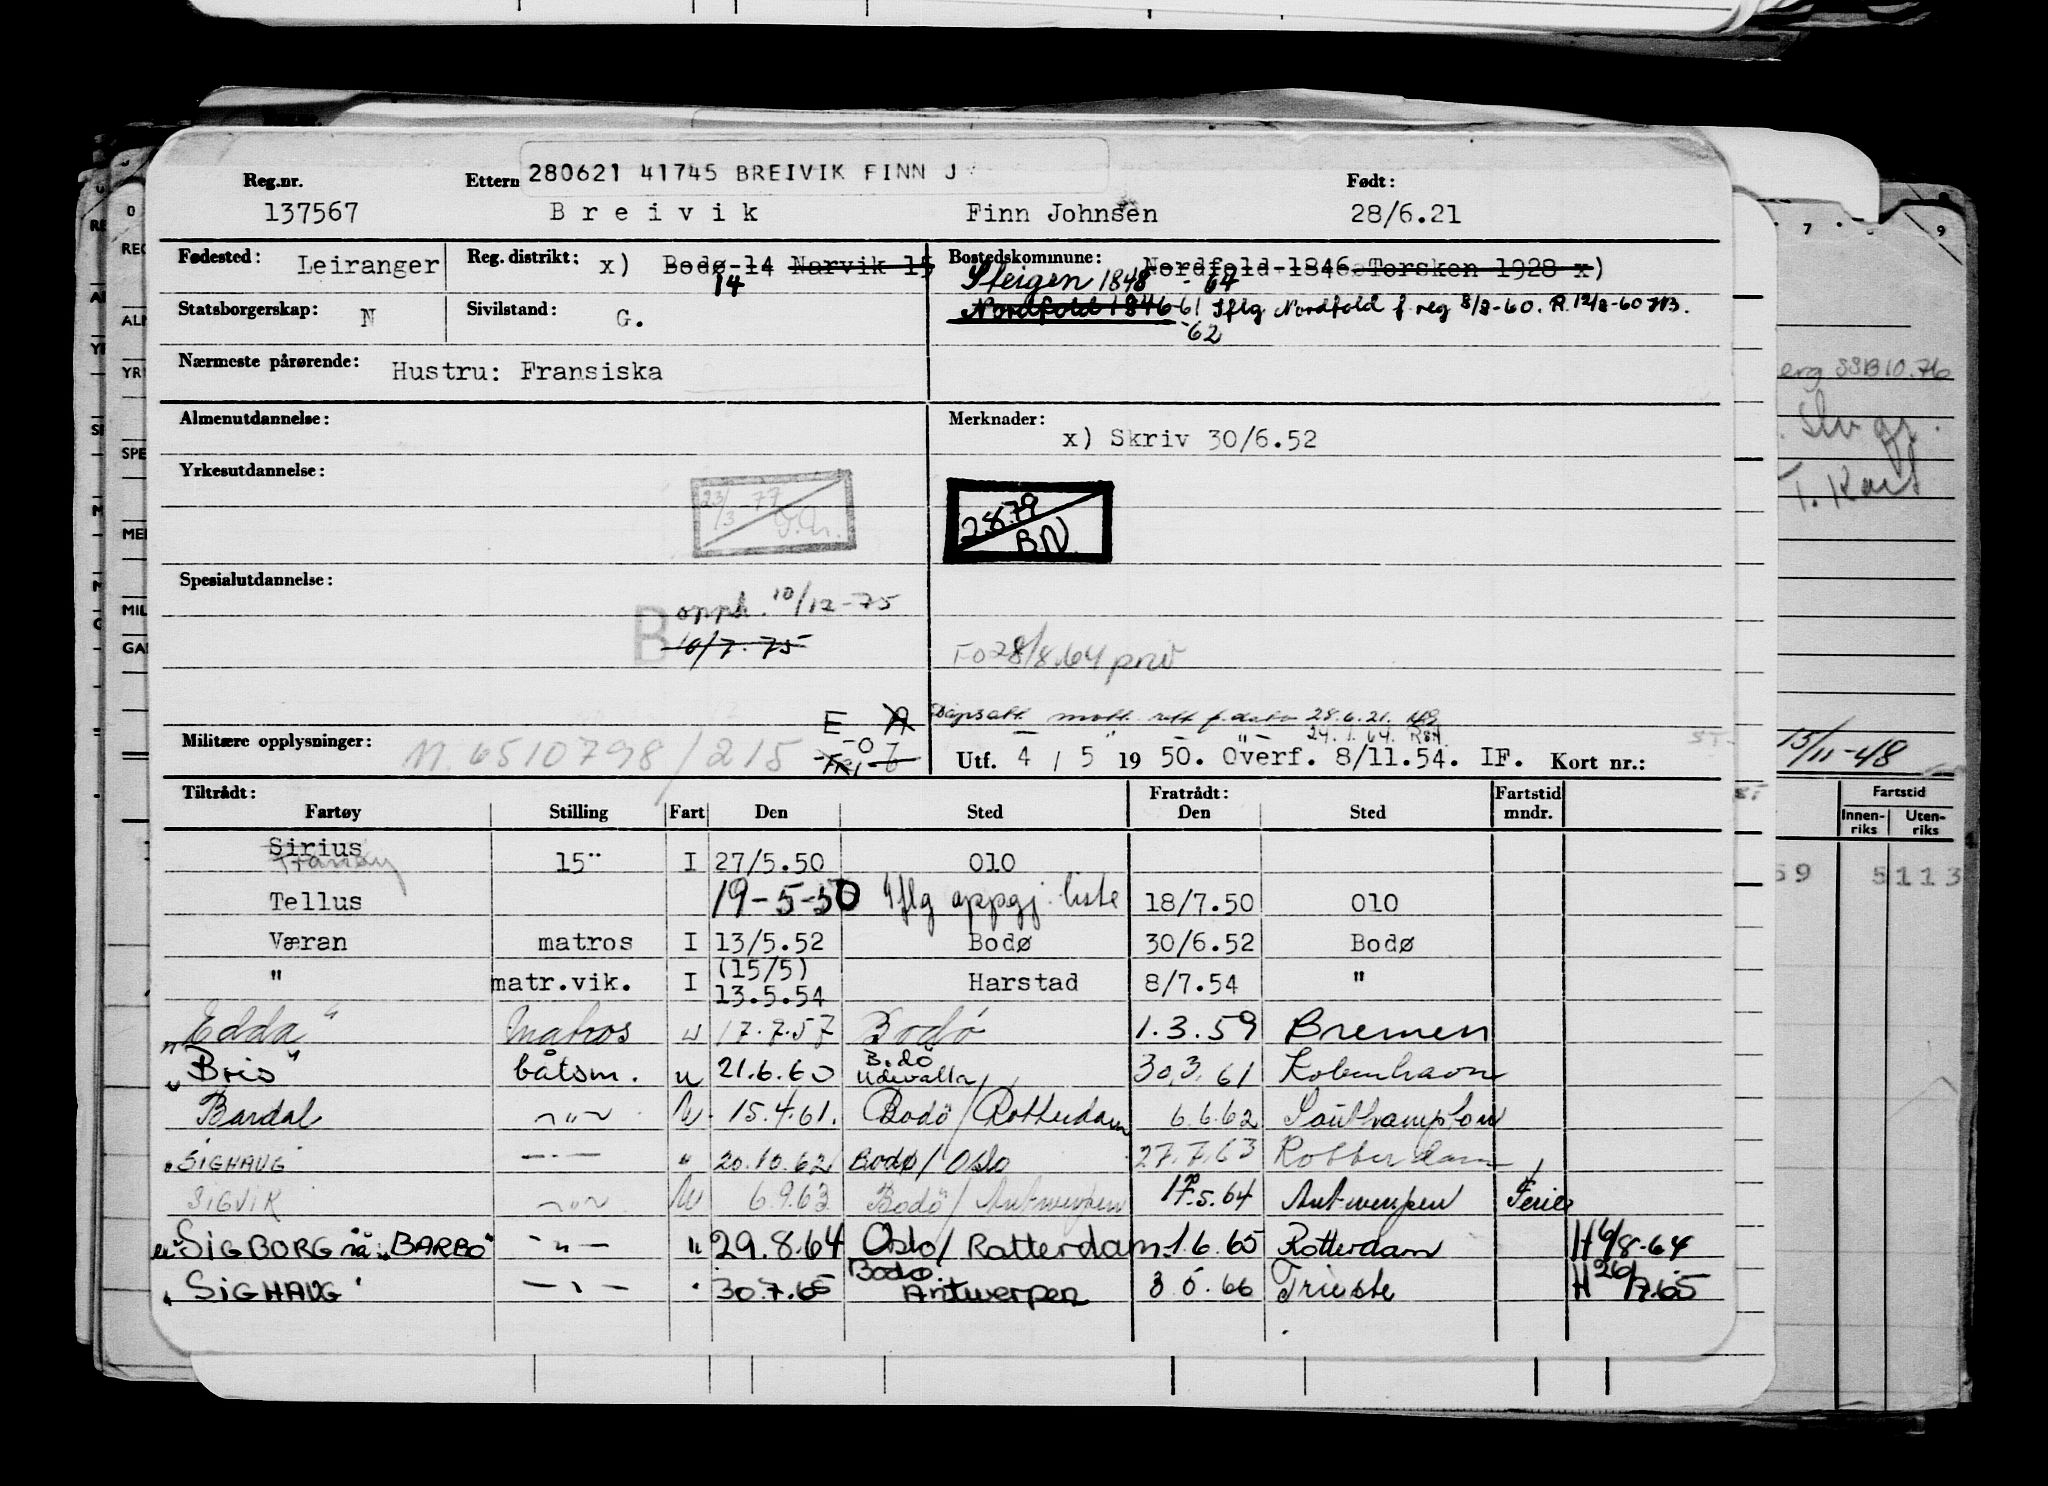 280621 41745 BREIVIK FINN J
Reg.nr. Ettern Født:
137567 Breivik Finn Johnsen 28/6.21
Fødested: Leiranger Reg. distrikt: x) Bodø-14 Narvik 15 Bostedskommune: Nordfold-1846 Torsken 1928 x)
14 Steigen 1848 - 64
Statsborgerskap: N Sivilstand: G. Nordfold 1846-61 Iflg Nordfold f.reg 8/8-60. R. 12/8-60
-62
Nærmeste pårørende: Hustru: Fransiska
Almenutdannelse: Merknader:
x) Skriv 30/6.52
Yrkesutdannelse:
23/3-77
2.8.79
BN
Spesialutdannelse:
B opph. 10/12-75
10/7-75
FO 28/8.64
E A 28.6.21.
24.1.64.
Militære opplysninger: M. 6510798/215 Utf. 4 / 5 19 50. Overf. 8/11.54. IF. Kort nr.:
Tiltrådt: Fratrådt: Fartstid
Fartøy Stilling Fart Den Sted Den Sted mndr.
Sirius
Tranøy 15" I 27/5.50 Olo
Tellus 19-5-50 Iflg oppgj. liste 18/7.50 Olo
Væran matros I 13/5.52 Bodø 30/6.52 Bodø
" matr.vik. I (15/5) 13.5.54 Harstad 8/7.54 "
"Edda" Matros u 17.7.57 Bodø 1.3.59 Bremen
"Bris" båtsm. u 21.6.60 Bodø Udevalla 30.3.61 København
Bardal -"- U. 15.4.61. Bodö/Rotterdam 6.6.62 Southampton
"SIGHAUG -"- " 20.10.62 Bodø/Oslo 27.7.63 Rotterdam
SIGVIK -"- U 6.9.63 Bodö/Antwerpen 19.5.64 Antwerpen Ferie
"SIGBORG nå "BARBO" -"- " 29.8.64 Oslo/Rotterdam 1.6.65 Rotterdam H 6/8-64
"SIGHAUG" -"- " 30.7.65 Bodø. Antwerpen 3 5.66 Trieste H 26/7.65
7 9
SSB 10.76
T. Kart
13/11-48
Fartstid
Innen-riks Uten-riks
59 5113